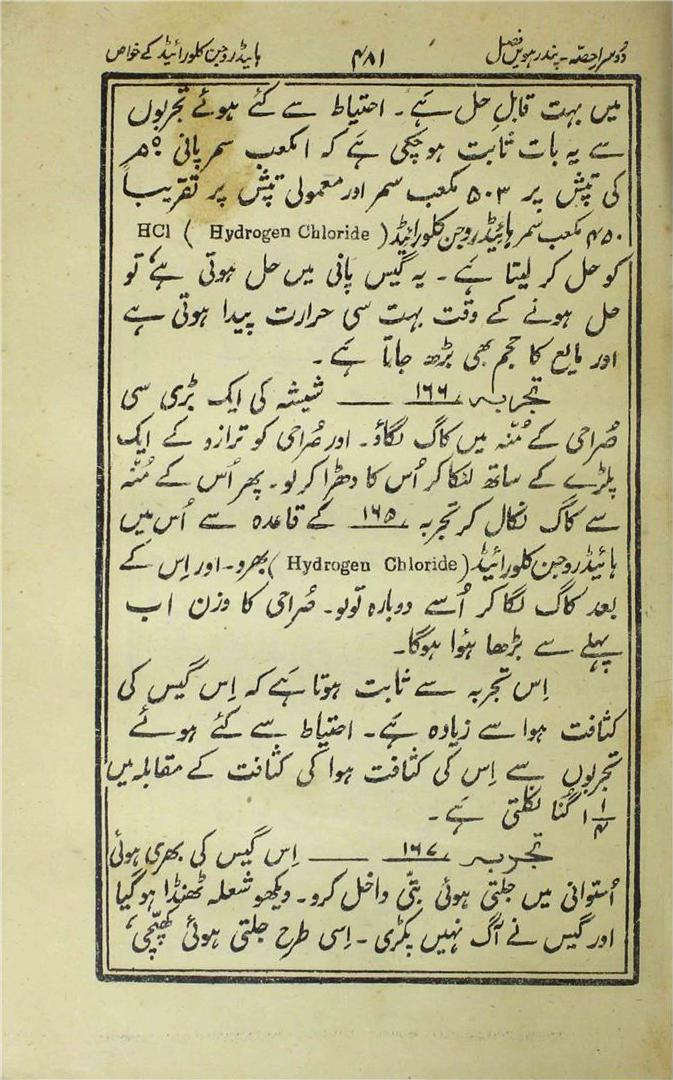 دُوسرا حصّہ - پندرھویں فصل ۴۸۱ ہائیڈروجن کلورائیڈ کے خواص
میں بہت قابلِ حل ہَے۔ احتیاط سے کئے ہوئے تجربوں
سے یہ بات ثابت ہو چکی ہَے کہ ۱ مکعب سمر پانی ۰°م
کی تپش پر ۵۰۳ مکعب سمر اور معمولی تپش پر تقریباً
۴۵۰ مکعب سمر ہائیڈروجن کلورائیڈ ( Hydrogen Chloride ) HCl
کو حل کر لیتا ہَے۔ یہ گیس پانی میں حل ہوتی ہَے تو
حل ہونے کے وقت بہت سی حرارت پیدا ہوتی ہَے
اور مایع کا حجم بھی بڑھ جاتا ہَے۔
تجربہ ۱۶۶ — شیشہ کی ایک بڑی سی
صُراحی کے مُنّہ میں کاگ لگاؤ۔ اور صُراحی کو ترازو کے ایک
پلڑے کے ساتھ لٹکا کر اُس کا دھڑا کرلو۔ پھر اُس کے مُنّہ
سے کاگ نکال کر تجربہ ۱۶۵ کے قاعدہ سے اُس میں
ہائیڈروجن کلورائیڈ ( Hydrogen Chloride ) بھرو۔ اور اِس کے
بعد کاگ لگا کر اُسے دوبارہ تولو۔ صُراحی کا وزن اب
پہلے سے بڑھا ہوُا ہوگا۔
اِس تجربہ سے ثابت ہوتا ہَے کہ اِس گیس کی
کثافت ہوا سے زیادہ ہَے۔ احتیاط سے کئے ہوئے
تجربوں سے اِس کی کثافت ہوا کی کثافت کے مقابلہ میں
۱ ۱/۴ گُنا نکلتی ہَے۔
تجربہ ۱۶۷ — اِس گیس کی بھری ہوئی
اُستوانی میں جلتی ہوئی بتّی داخل کرو۔ دیکھو شعلہ ٹھنڈا ہوگیا
اور گیس نے آگ نہیں پکڑی۔ اِسی طرح جلتی ہوئی کھپّچی،